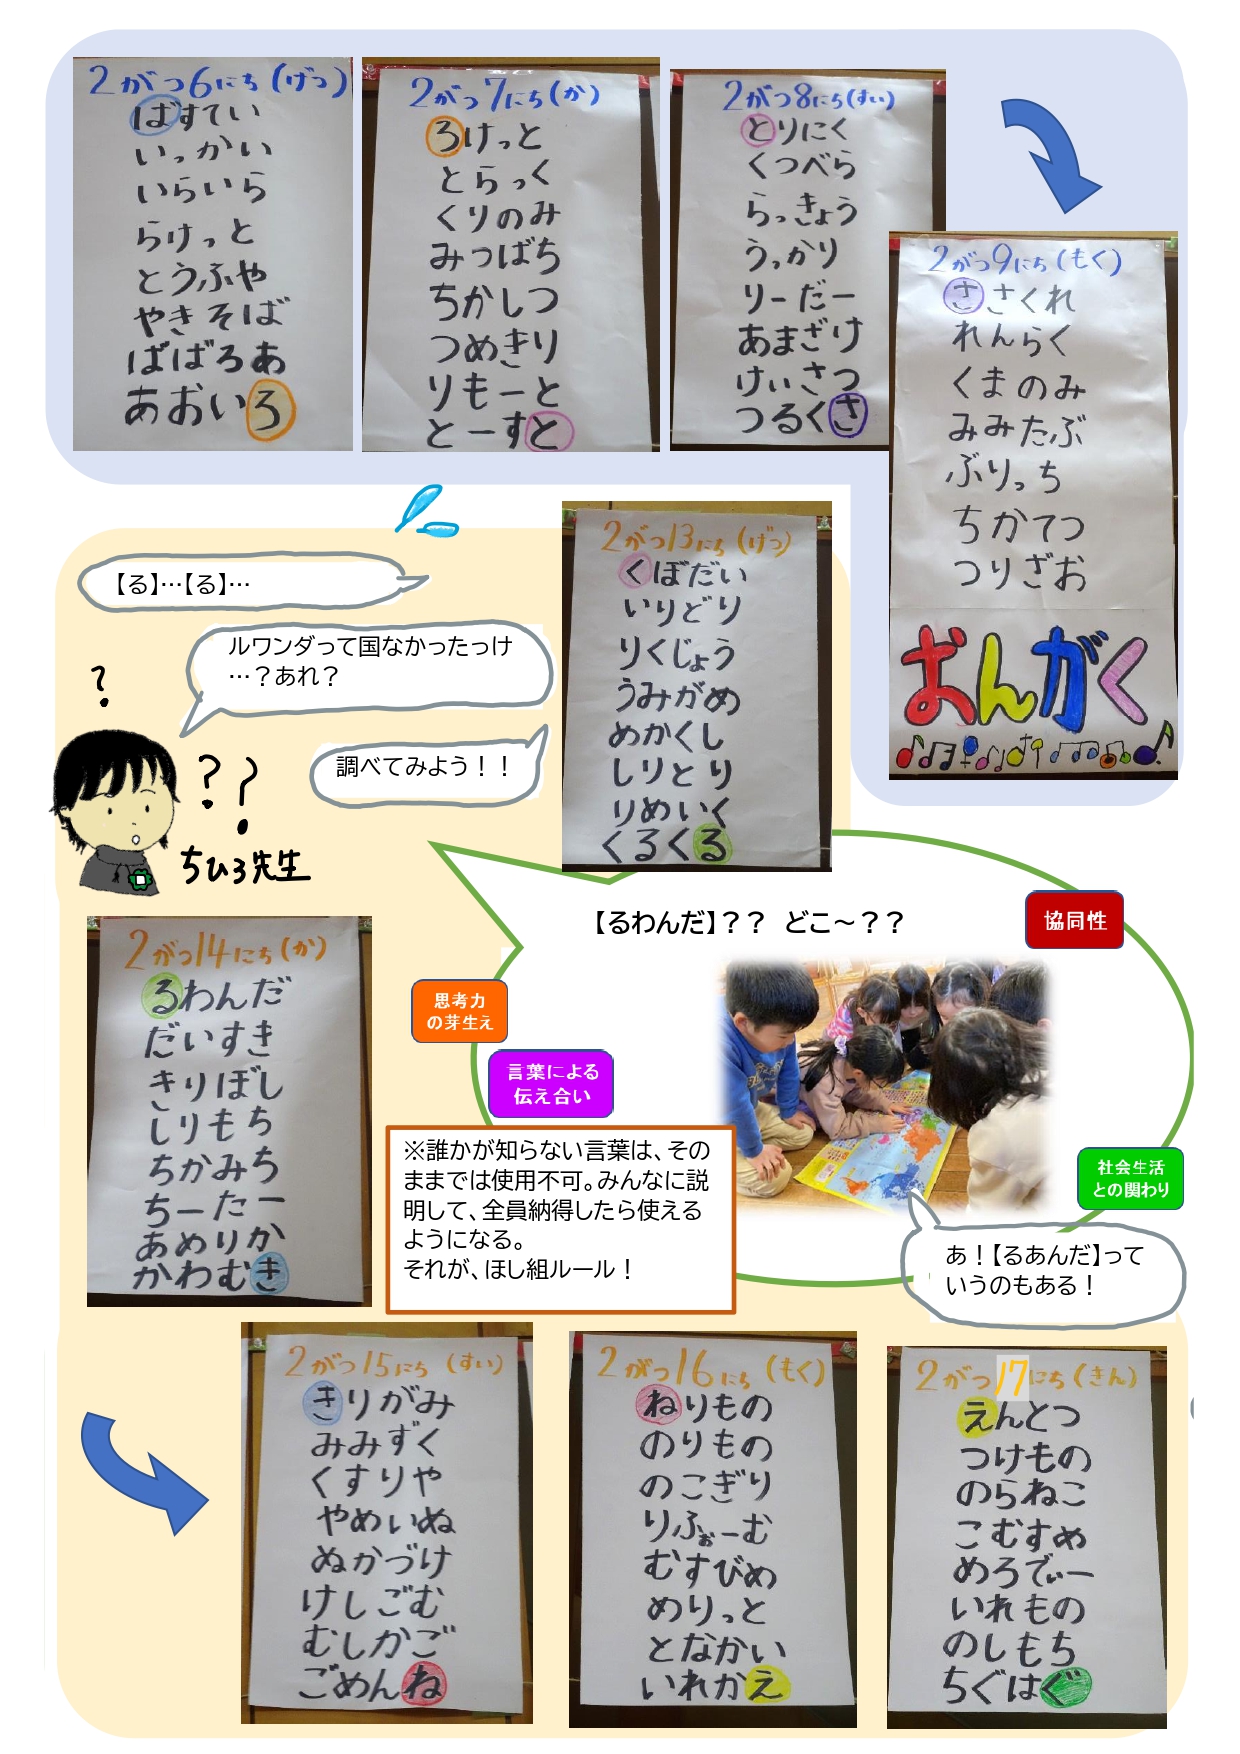 2がつ6にち(げつ)
ばすてい
いっかい
いらいら
らけっと
とうふや
やきそば
ばばろあ
あおいろ
2がつ7にち(か)
ろけっと
とらっく
くりのみ
みつばち
ちかしつ
つめきり
りもーと
とーすと
2がつ8にち(すい)
とりにく
くつべら
らっきょう
うっかり
りーだー
あまざけ
けいさつ
つるくさ
2がつ9にち(もく)
ささくれ
れんらく
くまのみ
みみたぶ
ぶりっち
ちかてつ
つりざお
おんがく
【る】…【る】…
ルワンダって国なかったっけ
…？あれ？
調べてみよう！！
?
??
ちひろ先生
2がつ13にち(げつ)
くぼだい
いりどり
りくじょう
うみがめ
めかくし
しりとり
りめいく
くるくる
【るわんだ】？？ どこ～？？
協同性
思考力
の芽生え
言葉による
伝え合い
社会生活
との関わり
※誰かが知らない言葉は、その
ままでは使用不可。みんなに説
明して、全員納得したら使える
ようになる。
それが、ほし組ルール！
あ！【るあんだ】って
いうのもある！
2がつ14にち(か)
るわんだ
だいすき
きりぼし
しりもち
ちかみち
ちーたー
あめりか
かわむき
2がつ15にち(すい)
きりがみ
みみずく
くすりや
やめいぬ
ぬかづけ
けしごむ
むしかご
ごめんね
2がつ16にち(もく)
ねりもの
のりもの
のこぎり
りふぉーむ
むすびめ
めりっと
となかい
いれかえ
2がつ17にち(きん)
えんとつ
つけもの
のらねこ
こむすめ
めろでぃー
いれもの
のしもち
ちぐはぐ